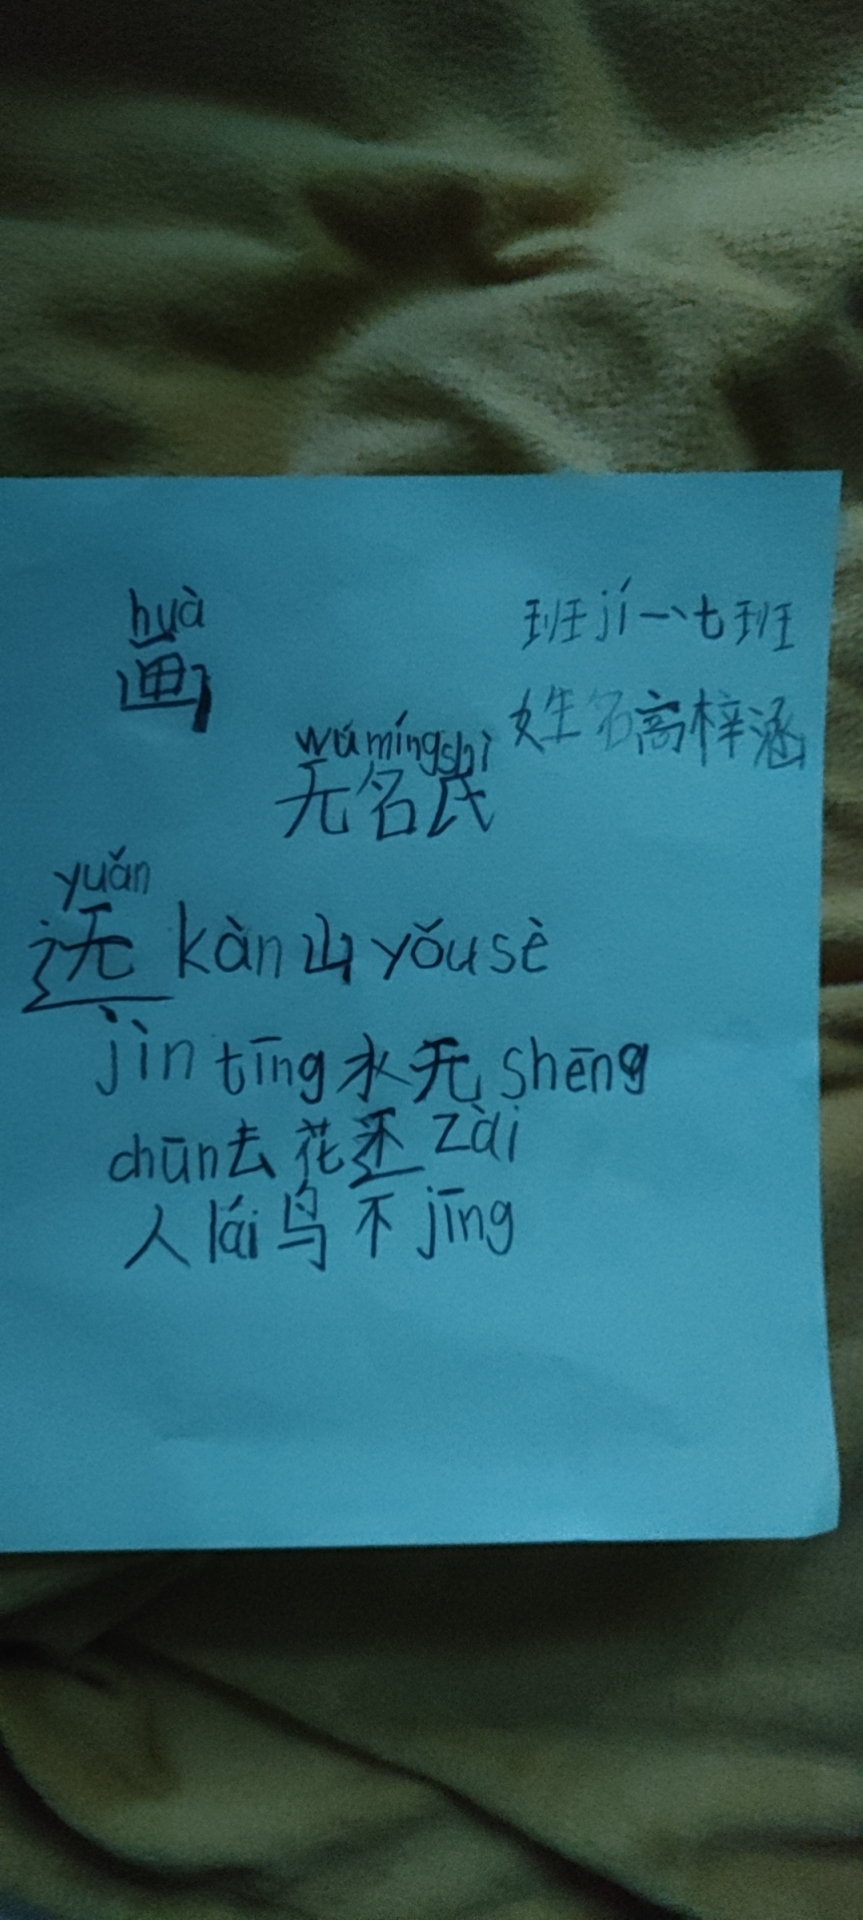 huà
画
班jí一、七班
姓名高梓涵
wúmíngshì
无名氏
yuǎn
远 kàn 山 yǒu sè
jìn tīng 水无 shēng
chūn去花还 zài
人 lái 鸟不 jīng